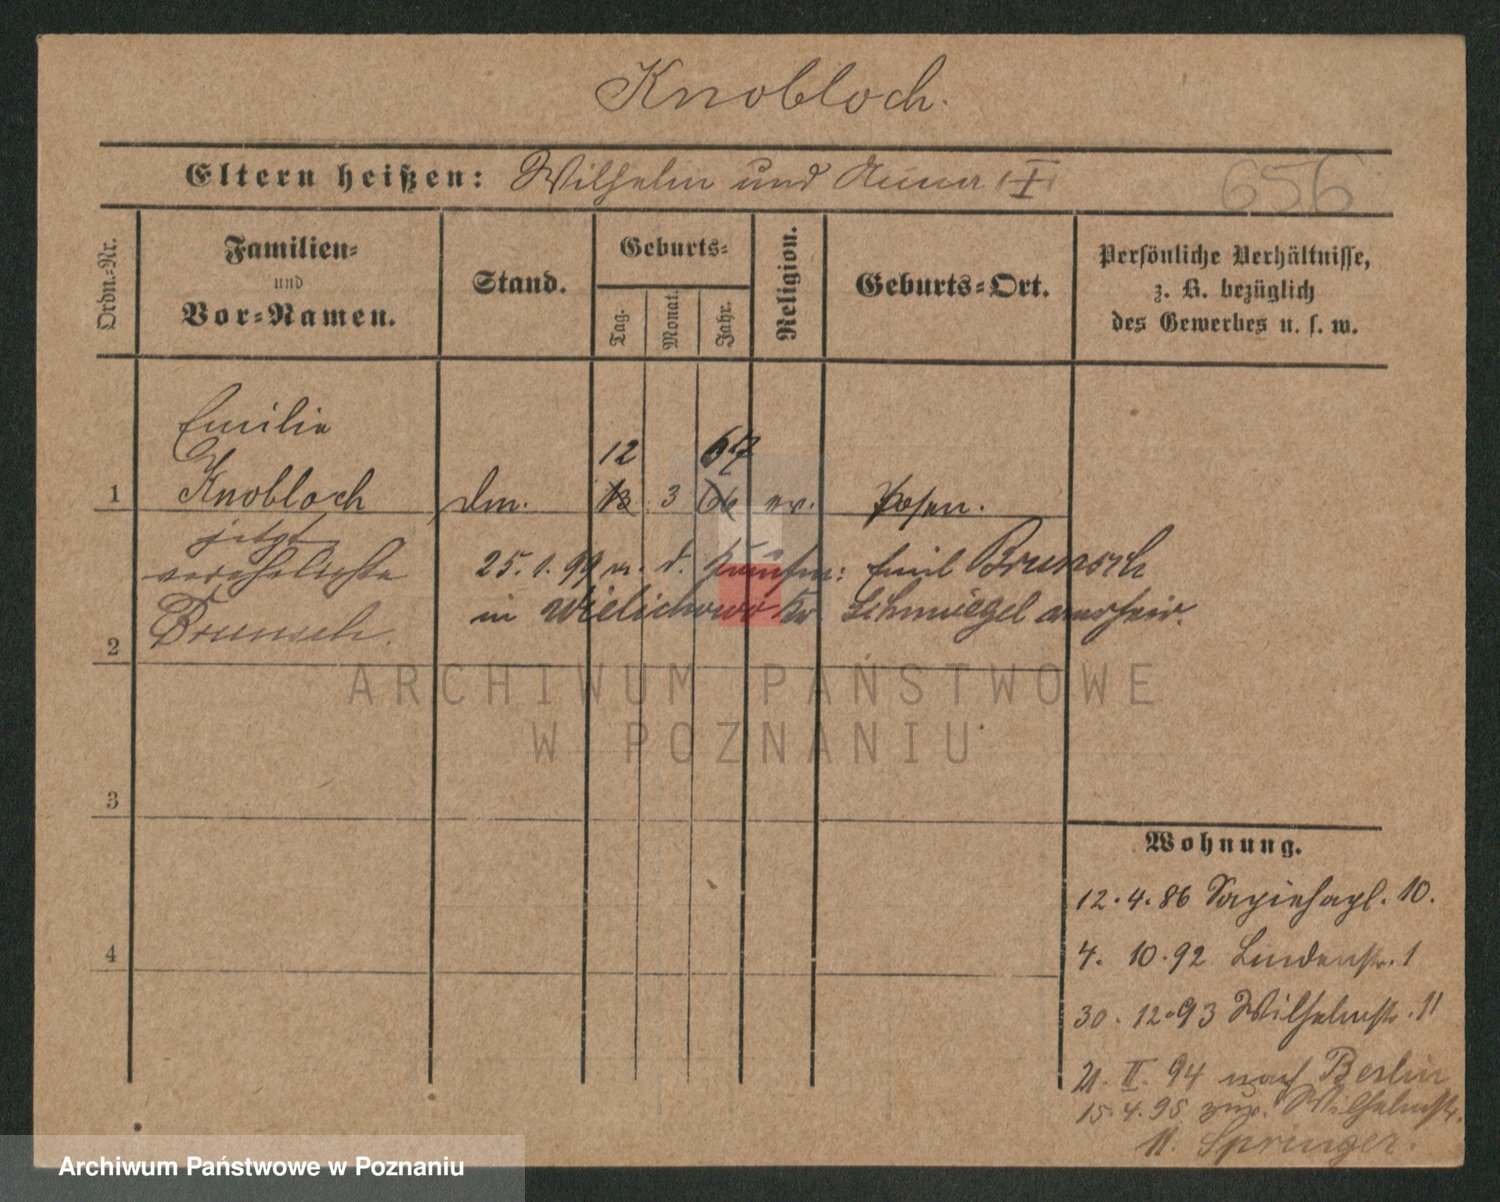 Knobloch.
Eltern heißen: Wilhelm und Anna
656
Ordn.-Nr.
Familien-
und
Vor-Namen.
Stand.
Geburts-
Tag.
Monat.
Jahr.
Religion.
Geburts-Ort.
Persönliche Verhältnisse,
z. B. bezüglich
des Gewerbes u. s. w.
Emilie
12 67
1 Knobloch 13 3 66 ev. Posen.
jetzt
verehelichte 25. 1. 99 d. Emil Brunsch
in Wielichowo Kr Schmiegel
2 Brunsch.
ARCHIWUM PAŃSTWOWE
W POZNANIU
3
Wohnung.
12. 4. 86 Sapiehapl. 10.
4
4. 10. 92 Lindenstr. 1
30. 12. 93 Wilhelmstr. 11
21. II. 94 nach Berlin
15. 4. 95 zur. Wilhelmstr.
11. Springer.
Archiwum Państwowe w Poznaniu